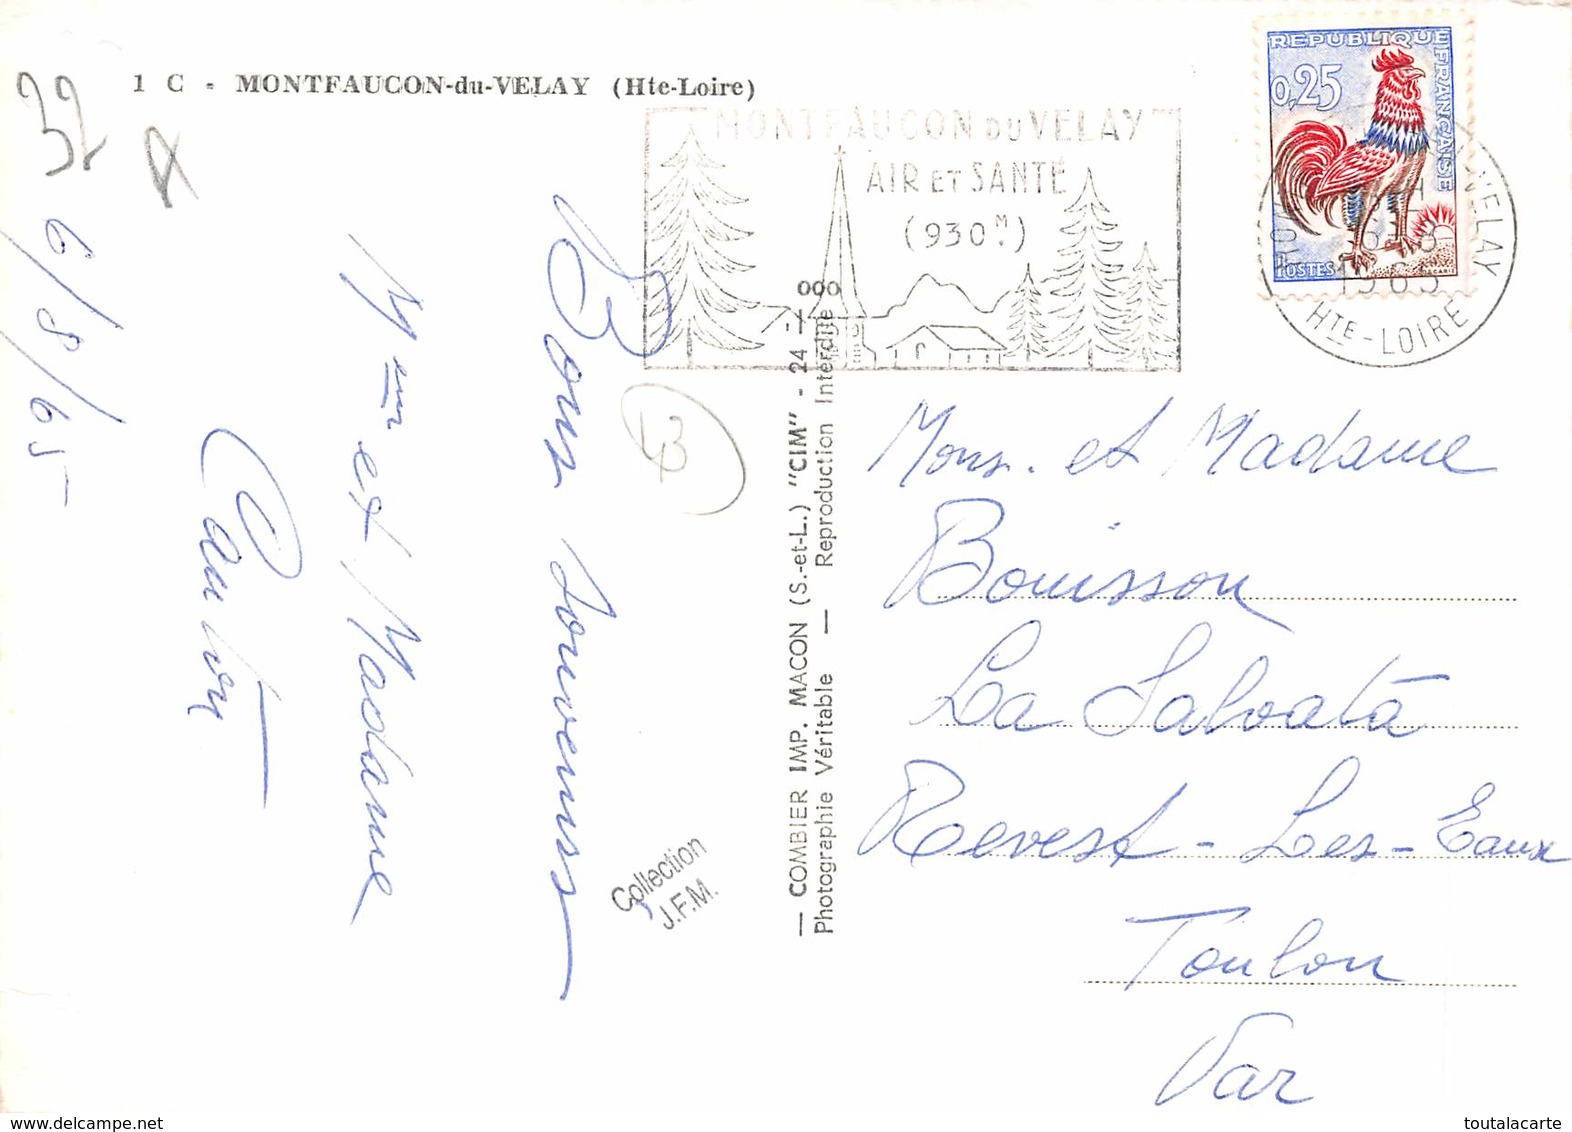 1 C - MONTFAUCON-du-VELAY (Hte-Loire)
32
6/8/65
Bons souvenirs
Meur et Madame
43
MONTFAUCON DU VELAY
AIR ET SANTÉ
(930M.)
REPUBLIQUE FRANÇAISE
0,25
POSTES
1965
HTE-LOIRE
— COMBIER IMP. MACON (S.-et-L.) "CIM" - 24
Photographie Véritable — Reproduction Interdite
Collection
J.F.M.
Mons. et Madame
Bouisson
La Salvatà
Revest-Les-Eaux
Toulon
Var
toutalacarte